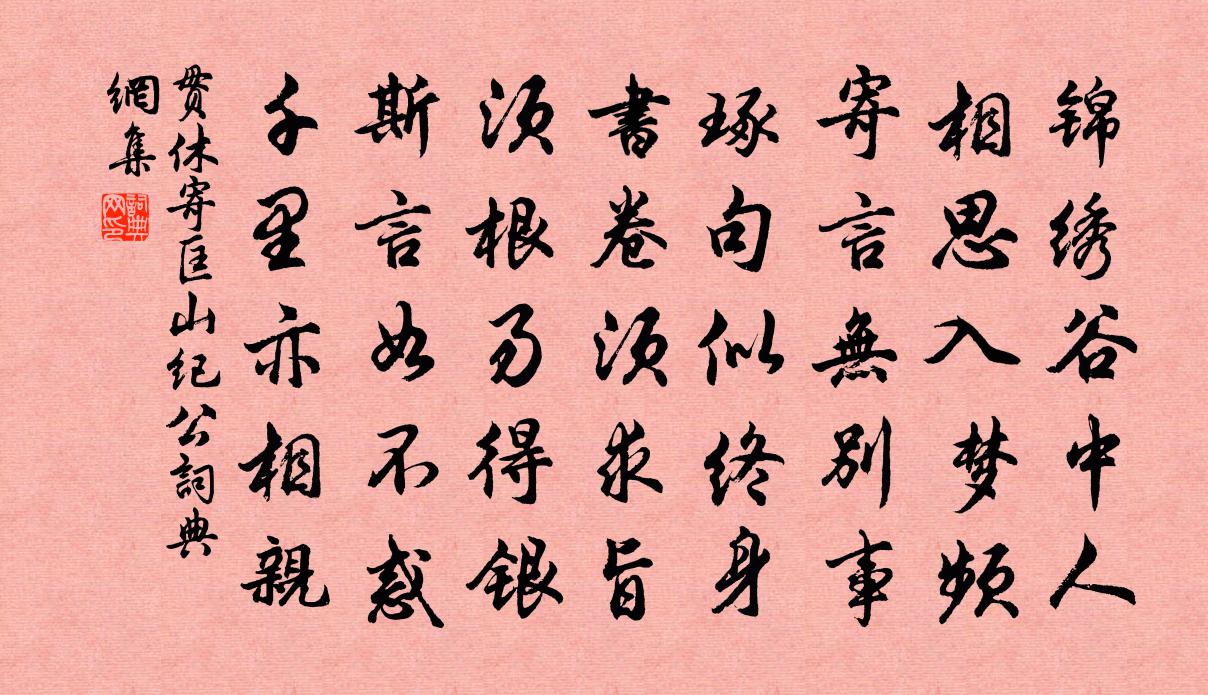 锦绣谷中人
相思入梦频
寄言無別事
琢句似终身
書卷须求旨
须根易得銀
斯言如不惑
千里亦相親
貫休寄匡山纪公詞典
網集
詞典
网印